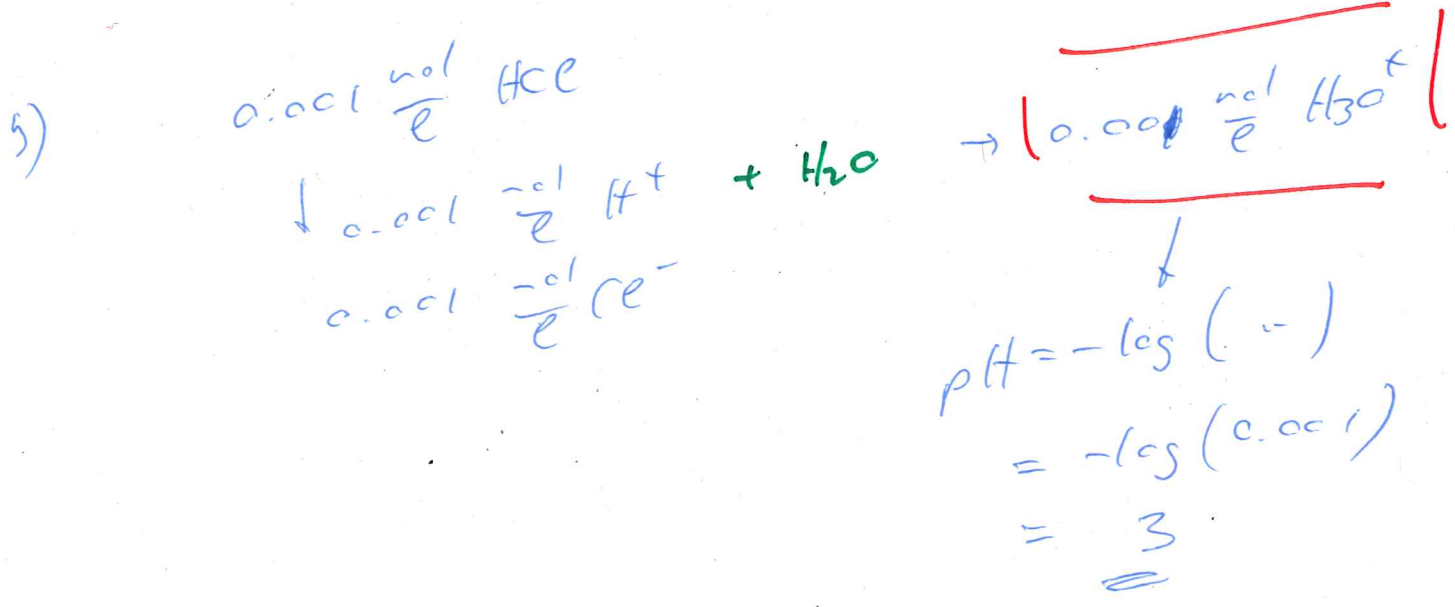 5)
0.001 mol/l HCl
↓ 0.001 mol/l H⁺ + H₂O → 0.001 mol/l H₃O⁺
0.001 mol/l Cl⁻
pH = -log ( .. )
= -log (0.001)
= 3